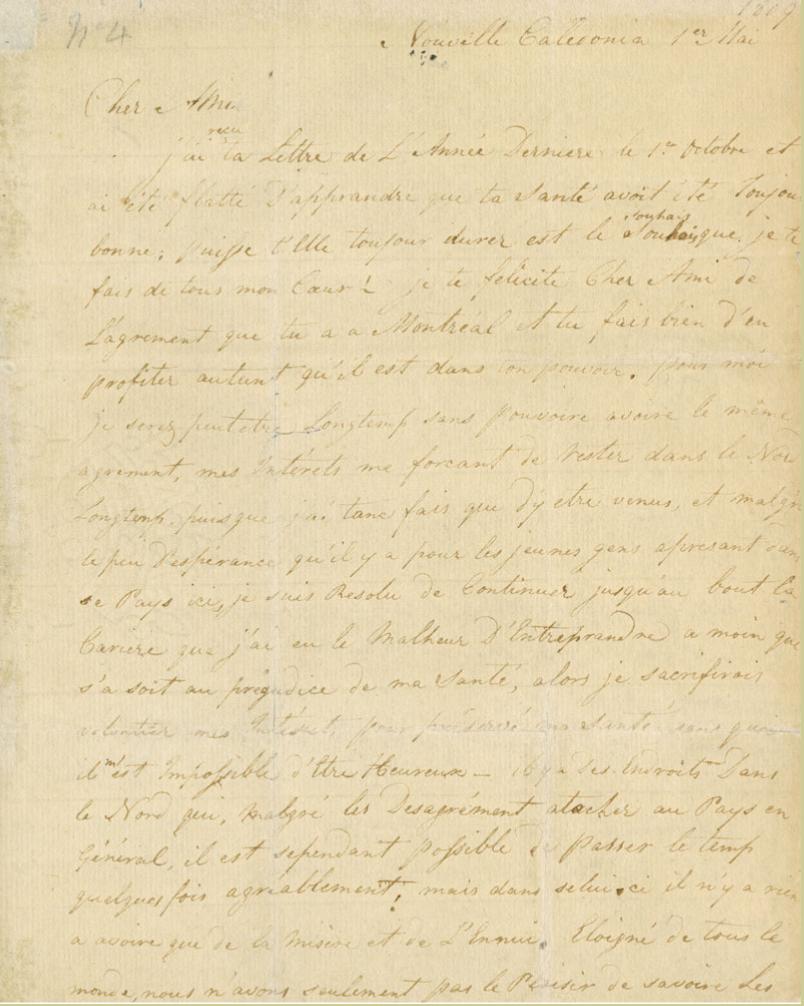 N° 4
1809
Nouvelle Caledonia 1er Mai
Cher Ami
reçu
j'ai ta Lettre de L'Année Derniere le 1er Octobre et
ai été flatté D'apprandre que ta Santé avoit été Toujou
souhais
bonne; puisse t'Elle toujour durer est le que je te
fais de tous mon Cœur! je te felicite Cher Ami de
L'agrement que tu a a Montréal et tu fais bien d'en
profiter autant qu'il est dans ton pouvoir. pour moi
je serez peutetre Longtemp sans pouvoire avoire le même
agrement, mes Intérets me forcant de rester dans le Nor
Longtemp, puisque j'ai tant fais que d'y etre venus, et malgr
le peu D'espérance qu'il y a pour les jeunes gens apresant dans
se Pays ici, je suis Resolu de Continuer jusqu'au bout la
Cariere que j'ai eu le Malheur D'Entreprandre a moin que
s'a soit au préjudice de ma Santé, alors je sacrifirais
volontier mes Intérèt, pour préservé ma Santé sans quoi
il m'est Impossible d'être Heureux — il y a des Endroits Dans
le Nord qui, malgré les Desagrément atacher au Pays en
Général, il est sependant possible de passer le temp
quelques fois agreablement; mais dans selui ci il n'y a rien
a avoire que de la misère et de L'Ennui. Eloigné de tous le
monde, nous n'avons seulement pas le Plaisir de savoire Les